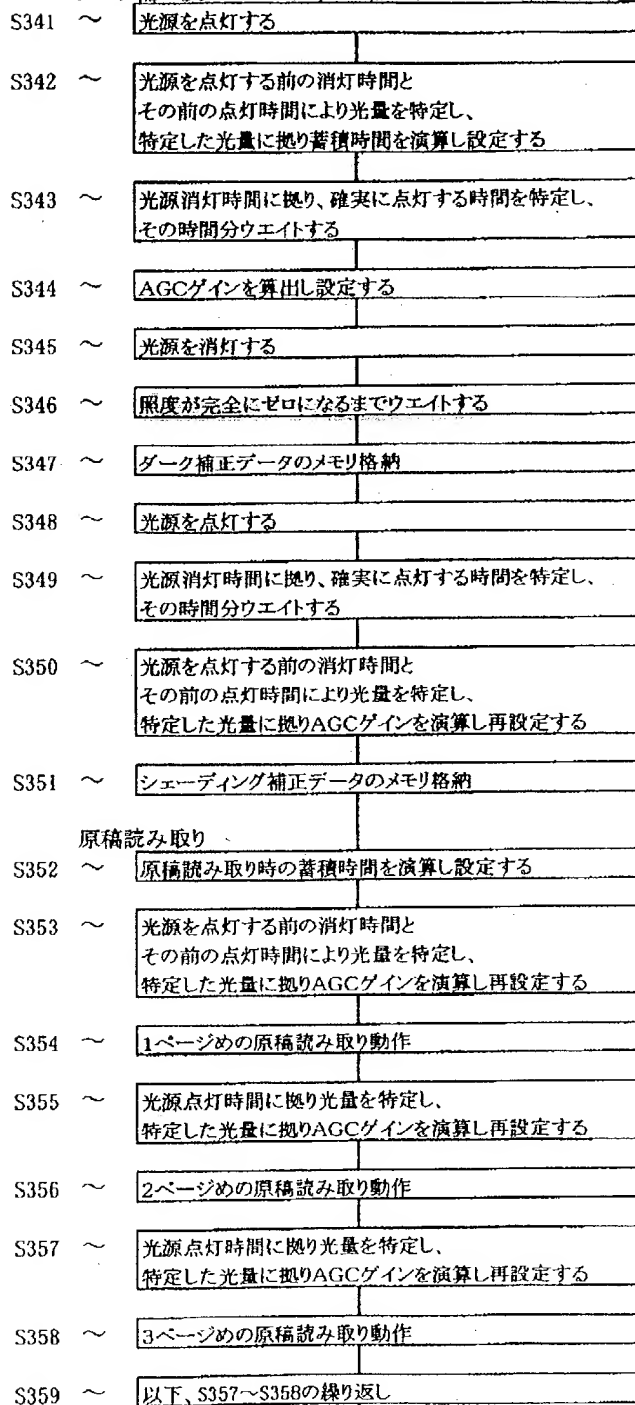 S341 ~ 光源を点灯する
S342 ~ 光源を点灯する前の消灯時間と
その前の点灯時間により光量を特定し、
特定した光量に拠り蓄積時間を演算し設定する
S343 ~ 光源消灯時間に拠り、確実に点灯する時間を特定し、
その時間分ウエイトする
S344 ~ AGCゲインを算出し設定する
S345 ~ 光源を消灯する
S346 ~ 照度が完全にゼロになるまでウエイトする
S347 ~ ダーク補正データのメモリ格納
S348 ~ 光源を点灯する
S349 ~ 光源消灯時間に拠り、確実に点灯する時間を特定し、
その時間分ウエイトする
S350 ~ 光源を点灯する前の消灯時間と
その前の点灯時間により光量を特定し、
特定した光量に拠りAGCゲインを演算し再設定する
S351 ~ シェーディング補正データのメモリ格納
原稿読み取り
S352 ~ 原稿読み取り時の蓄積時間を演算し設定する
S353 ~ 光源を点灯する前の消灯時間と
その前の点灯時間により光量を特定し、
特定した光量に拠りAGCゲインを演算し再設定する
S354 ~ 1ページめの原稿読み取り動作
S355 ~ 光源点灯時間に拠り光量を特定し、
特定した光量に拠りAGCゲインを演算し再設定する
S356 ~ 2ページめの原稿読み取り動作
S357 ~ 光源点灯時間に拠り光量を特定し、
特定した光量に拠りAGCゲインを演算し再設定する
S358 ~ 3ページめの原稿読み取り動作
S359 ~ 以下、S357~S358の繰り返し